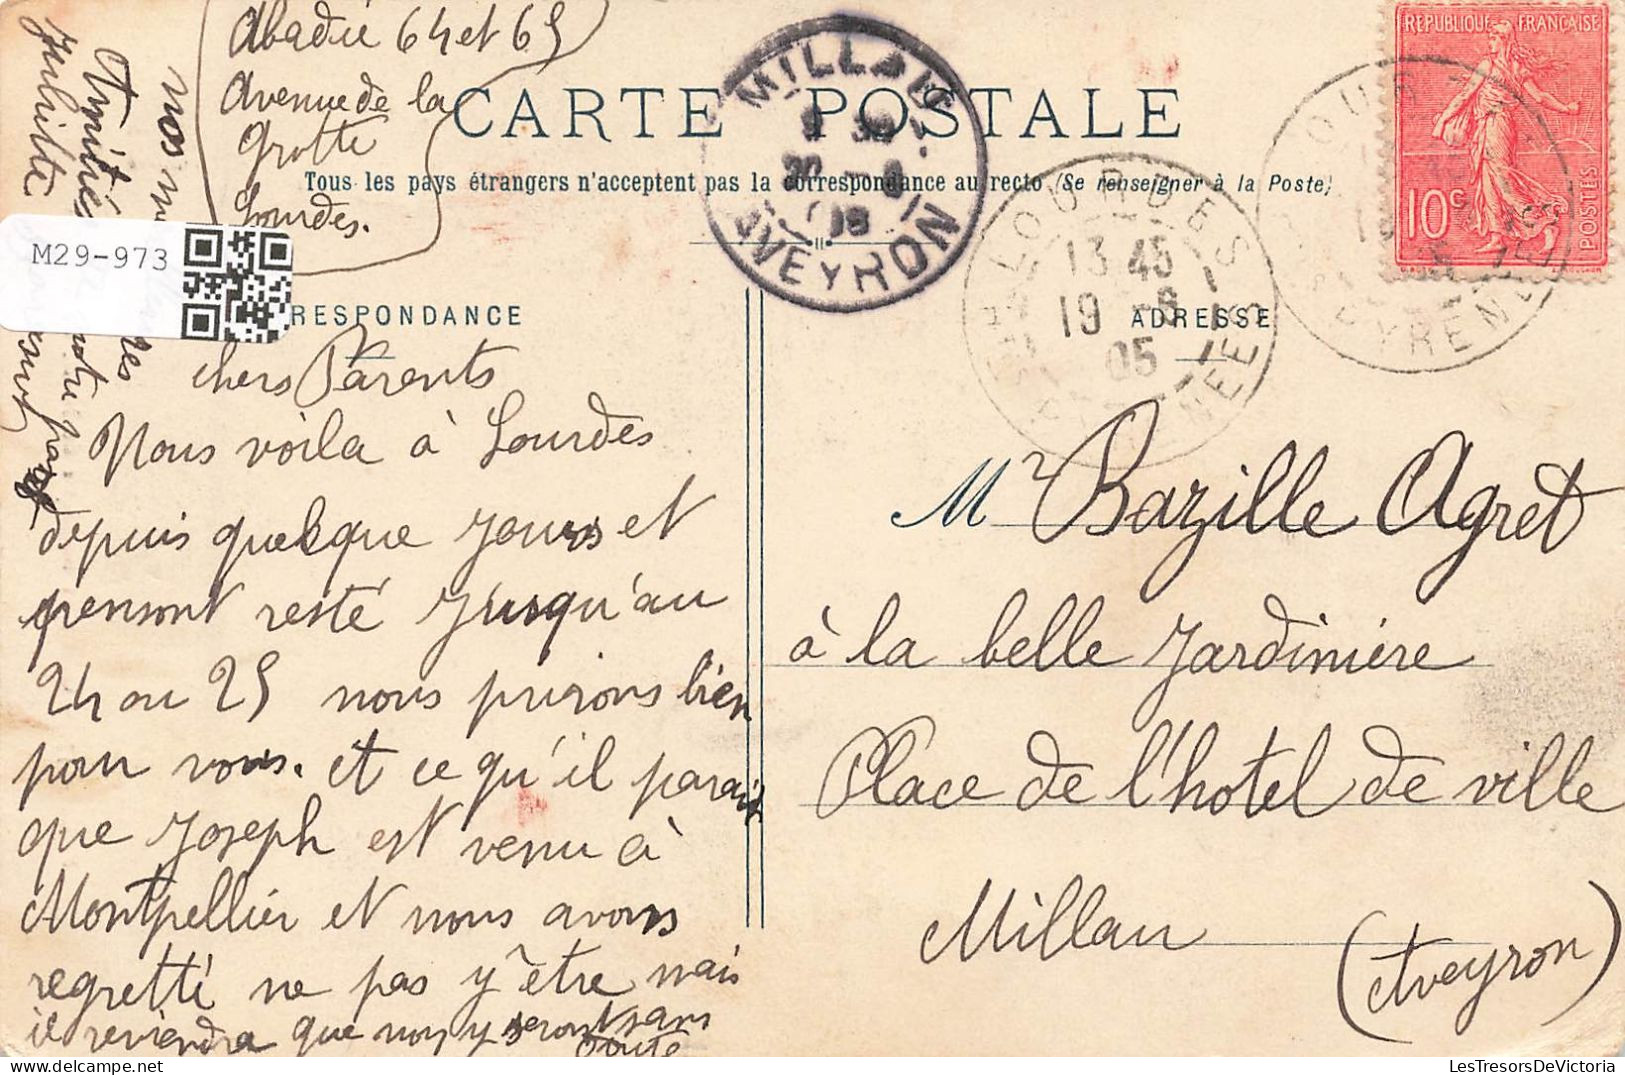 Abadie 64 et 65
Avenue de la
Grotte
Lourdes.
nos
Amitiés
Juliette
CARTE POSTALE
Tous les pays étrangers n'acceptent pas la correspondance au recto (Se renseigner à la Poste)
MILLAU
AVEYRON
LOURDES
13 45
19 -6
05
PYRENEES
REPUBLIQUE FRANÇAISE
10c
POSTES
M29-973
RESPONDANCE
ADRESSE
chers Parents
Nous voila à Lourdes
depuis quelque jours et
pensont resté jusqu'au
24 ou 25 nous prirons bien
pour vous. et ce qu'il parait
que Joseph est venu à
Montpellier et nous avons
regretté ne pas y être mais
il reviendra que nous y seront sans
doute
Mr Bazille Agret
à la belle Jardinière
Place de l'hotel de ville
Millau
(Aveyron)
LesTresorsDeVictoria